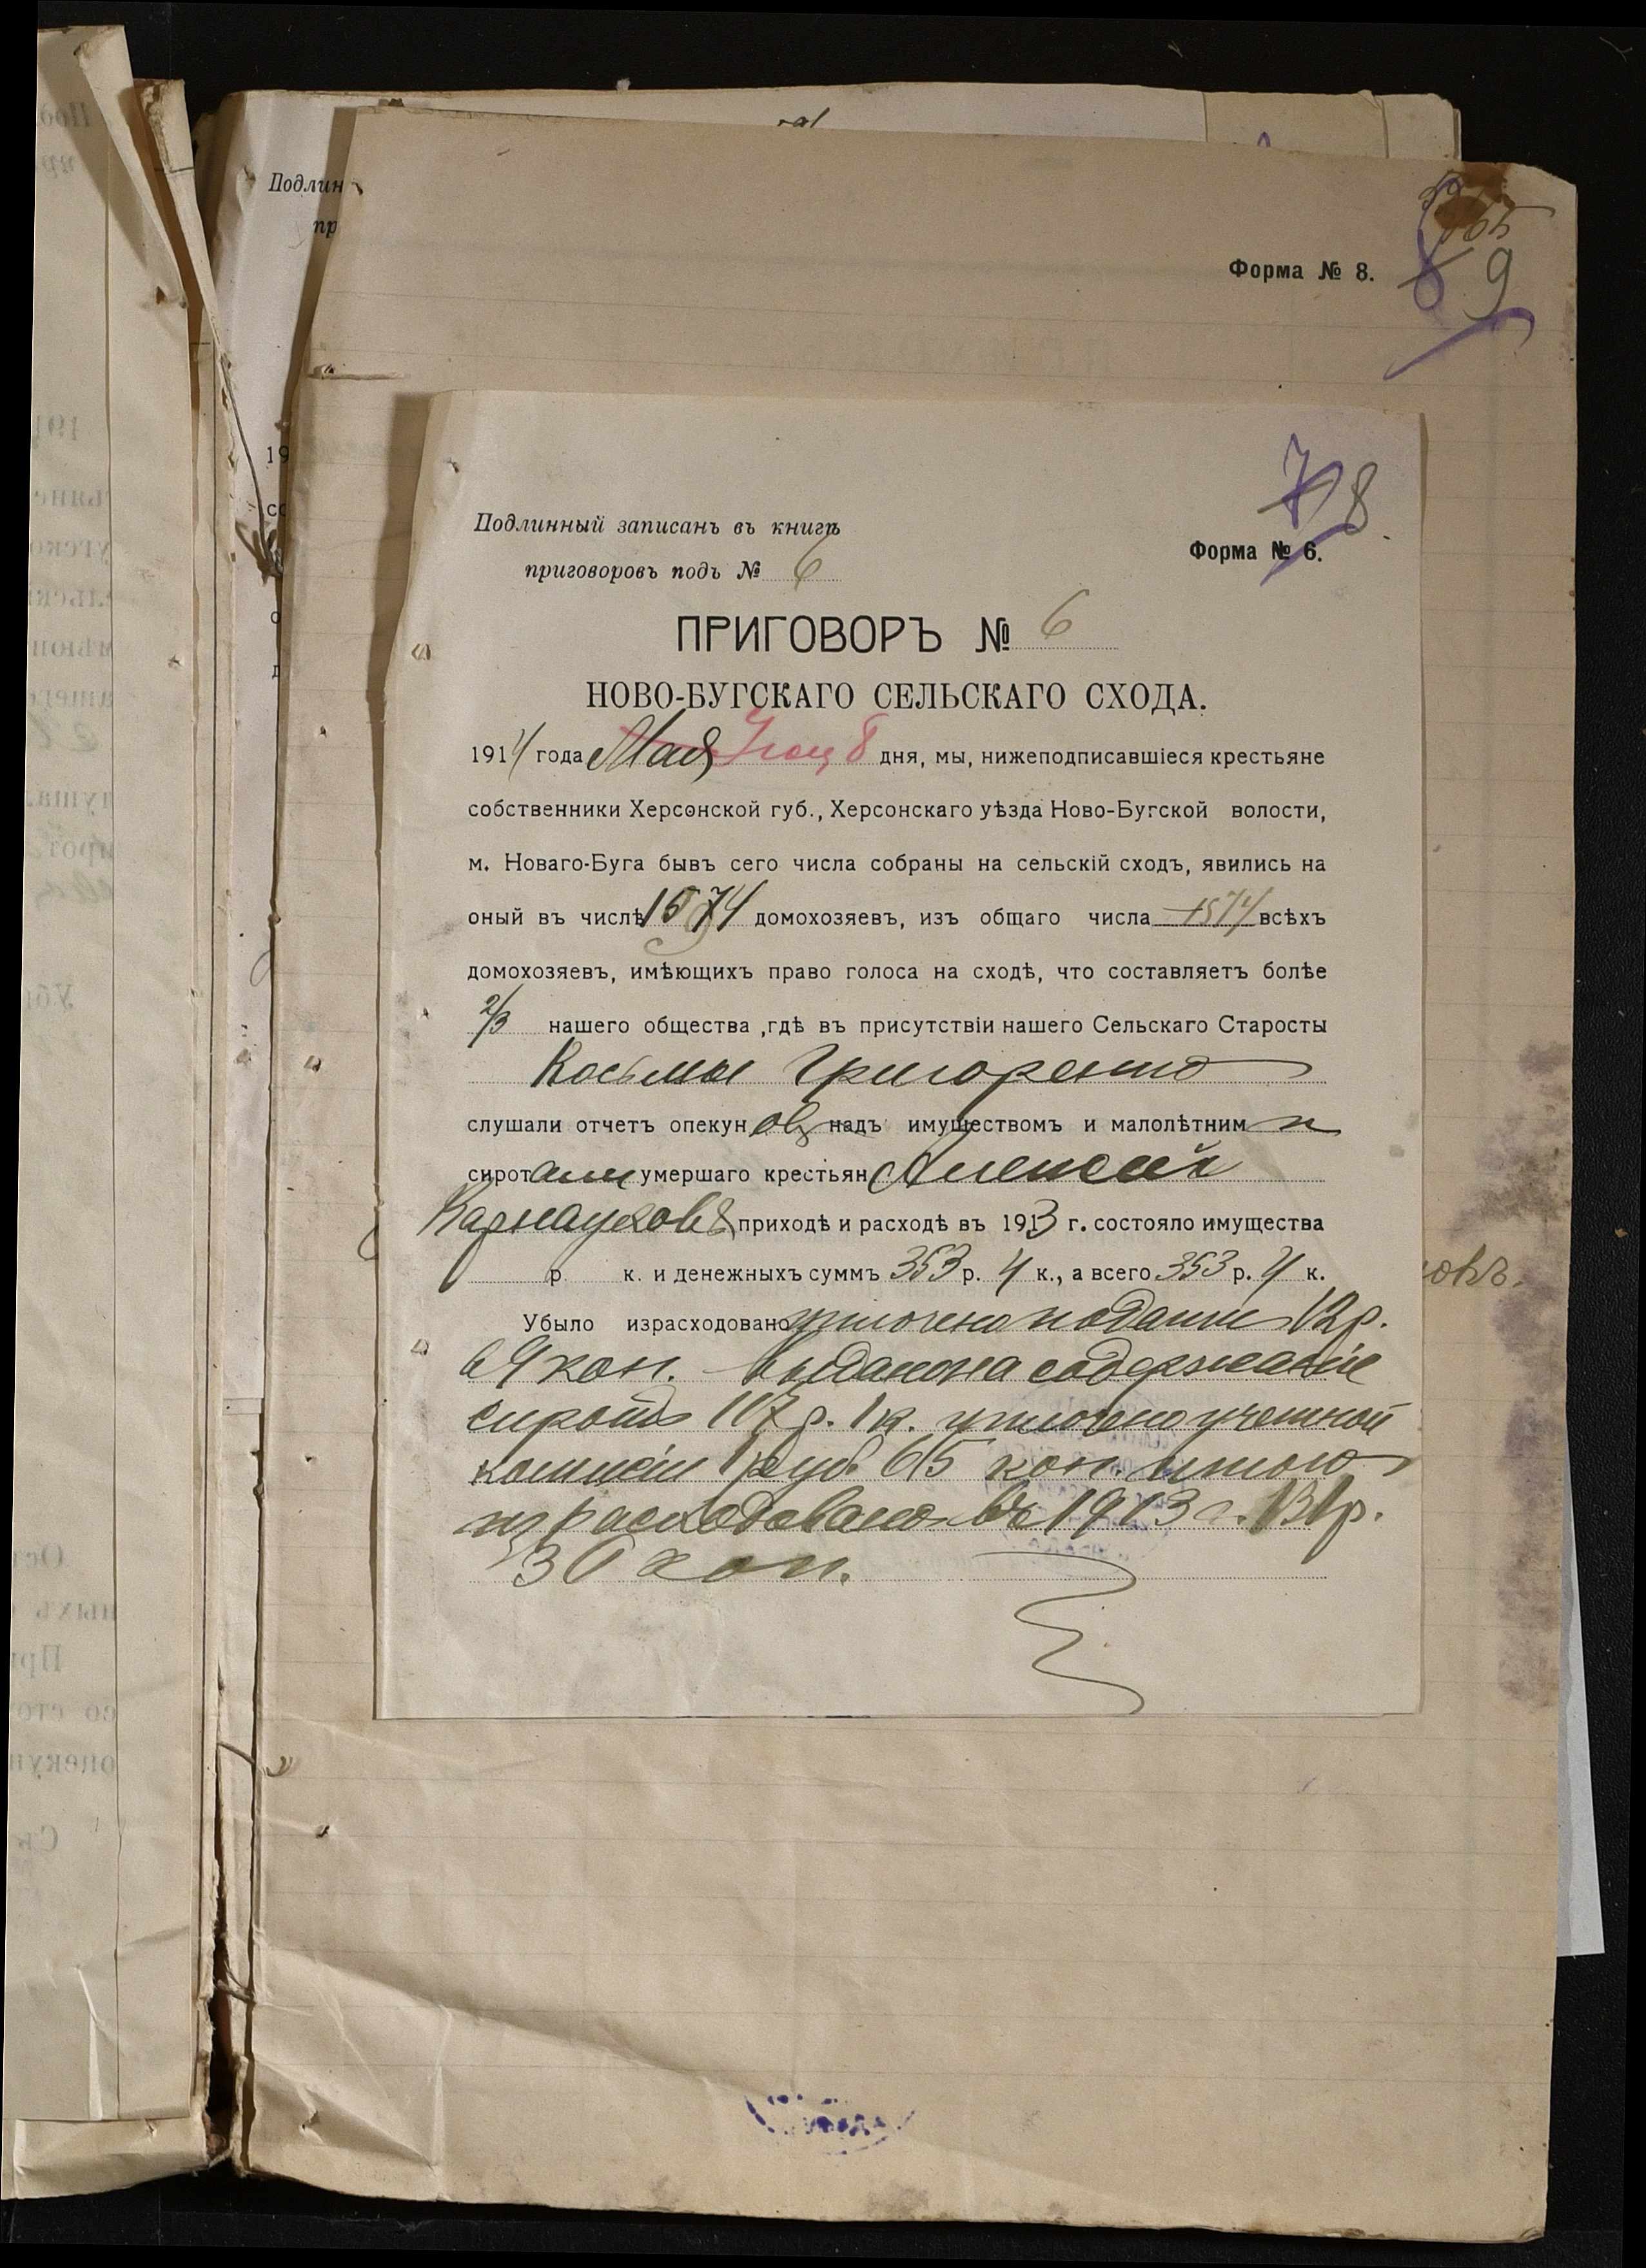 Подлин
пр
Форма № 8.
9
8
Подлинный записанъ въ книгѣ
приговоровъ подъ № 6
Форма № 6.
ПРИГОВОРЪ № 6
НОВО-БУГСКАГО СЕЛЬСКАГО СХОДА.
1914 года Мая 8 дня, мы, нижеподписавшіеся крестьяне
собственники Херсонской губ., Херсонскаго уѣзда Ново-Бугской волости,
м. Новаго-Буга бывъ сего числа собраны на сельскій сходъ, явились на
оный въ числѣ 1074 домохозяевъ, изъ общаго числа 1574 всѣхъ
домохозяевъ, имѣющихъ право голоса на сходѣ, что составляетъ болѣе
2/3 нашего общества ,гдѣ въ присутствіи нашего Сельскаго Старосты
Косьмы Григоренко
слушали отчетъ опекуновъ надъ имуществомъ и малолѣтними
сиротами умершаго крестьян Алексѣя
Карнаухова приходѣ и расходѣ въ 1913 г. состояло имущества
р. к. и денежныхъ суммъ 353 р. 4 к., а всего 353 р. 4 к.
Убыло израсходовано уплочено подати 12 р.
64 коп. выдано на содержаніе
сиротъ 117 р. 1 к. уплочено учетной
комисіи 1 руб. 65 коп. итого
израсходовано въ 1913 г. 131 р.
30 коп.